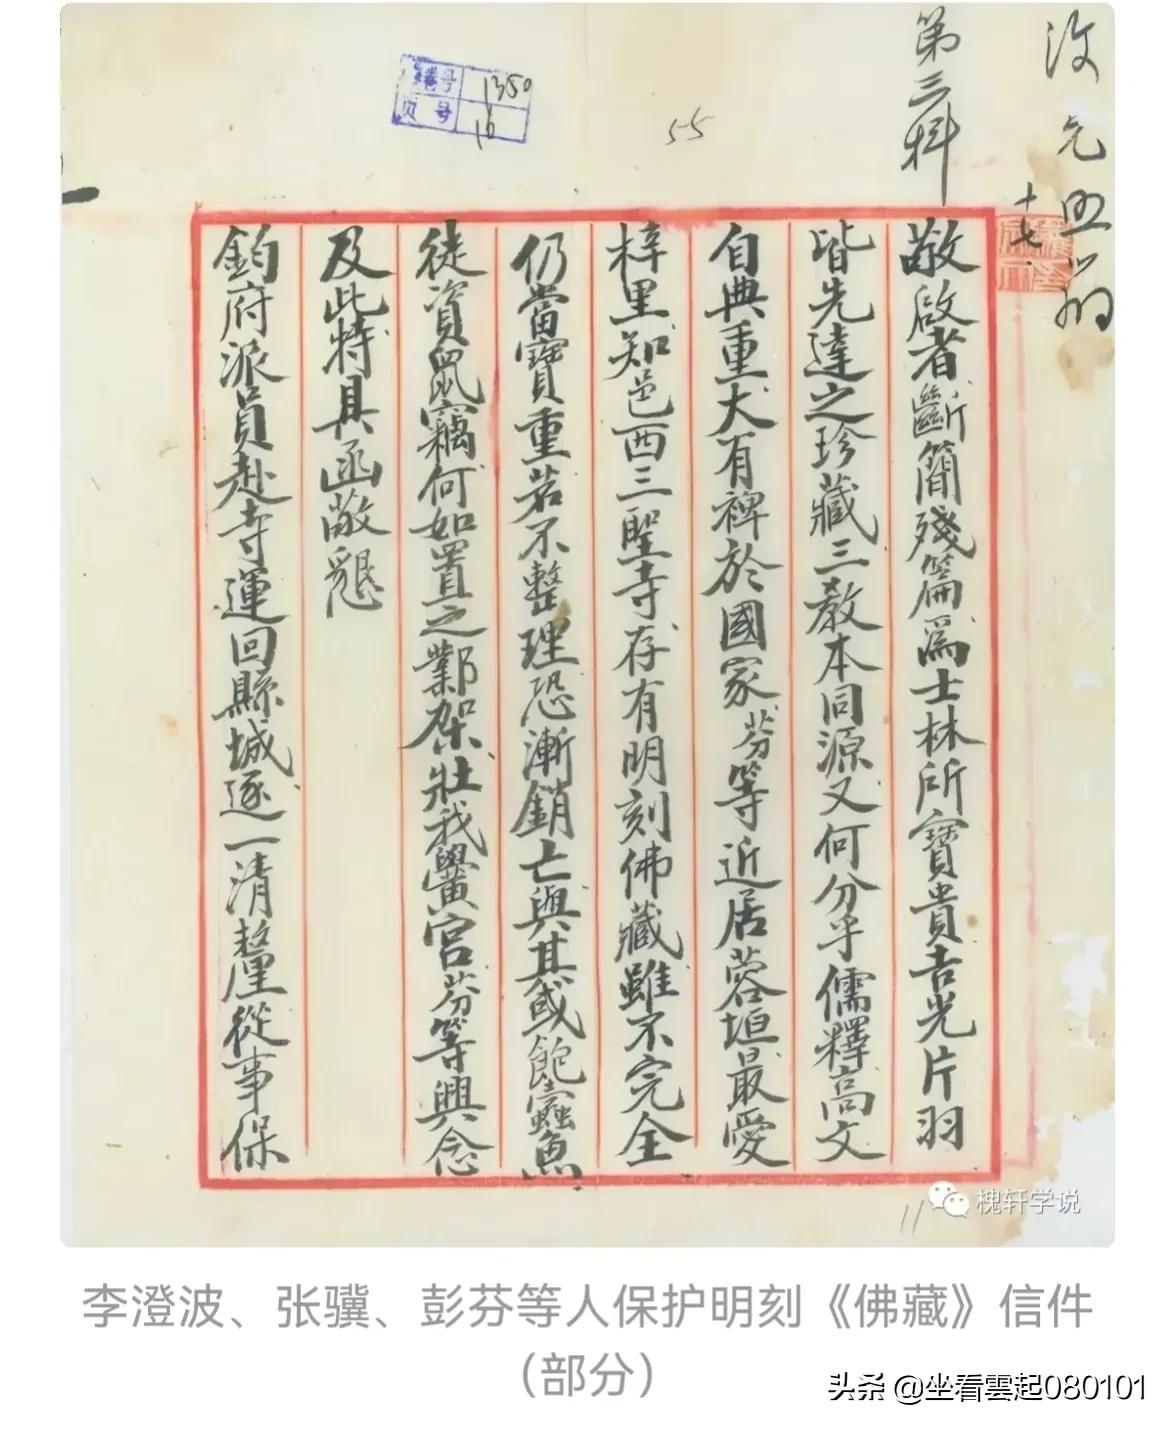 第三科
卷号 1350
页号 16
55
十七
敬啟者斷簡殘篇爲士林所寶貴吉光片羽
皆先達之珍藏三教本同源又何分乎儒釋高文
自典重大有裨於國家芬等近居蓉垣最愛
梓里知邑西三聖寺存有明刻佛藏雖不完全
仍當寶重若不整理恐漸銷亡與其或飽蠹魚
徒資鼠竊何如置之鄴架壯我黌宮芬等興念
及此特具函敬懇
鈞府派員赴寺運回縣城逐一清釐從事保
11
槐轩学说
李澄波、张骥、彭芬等人保护明刻《佛藏》信件
（部分）
头条 @坐看雲起080101